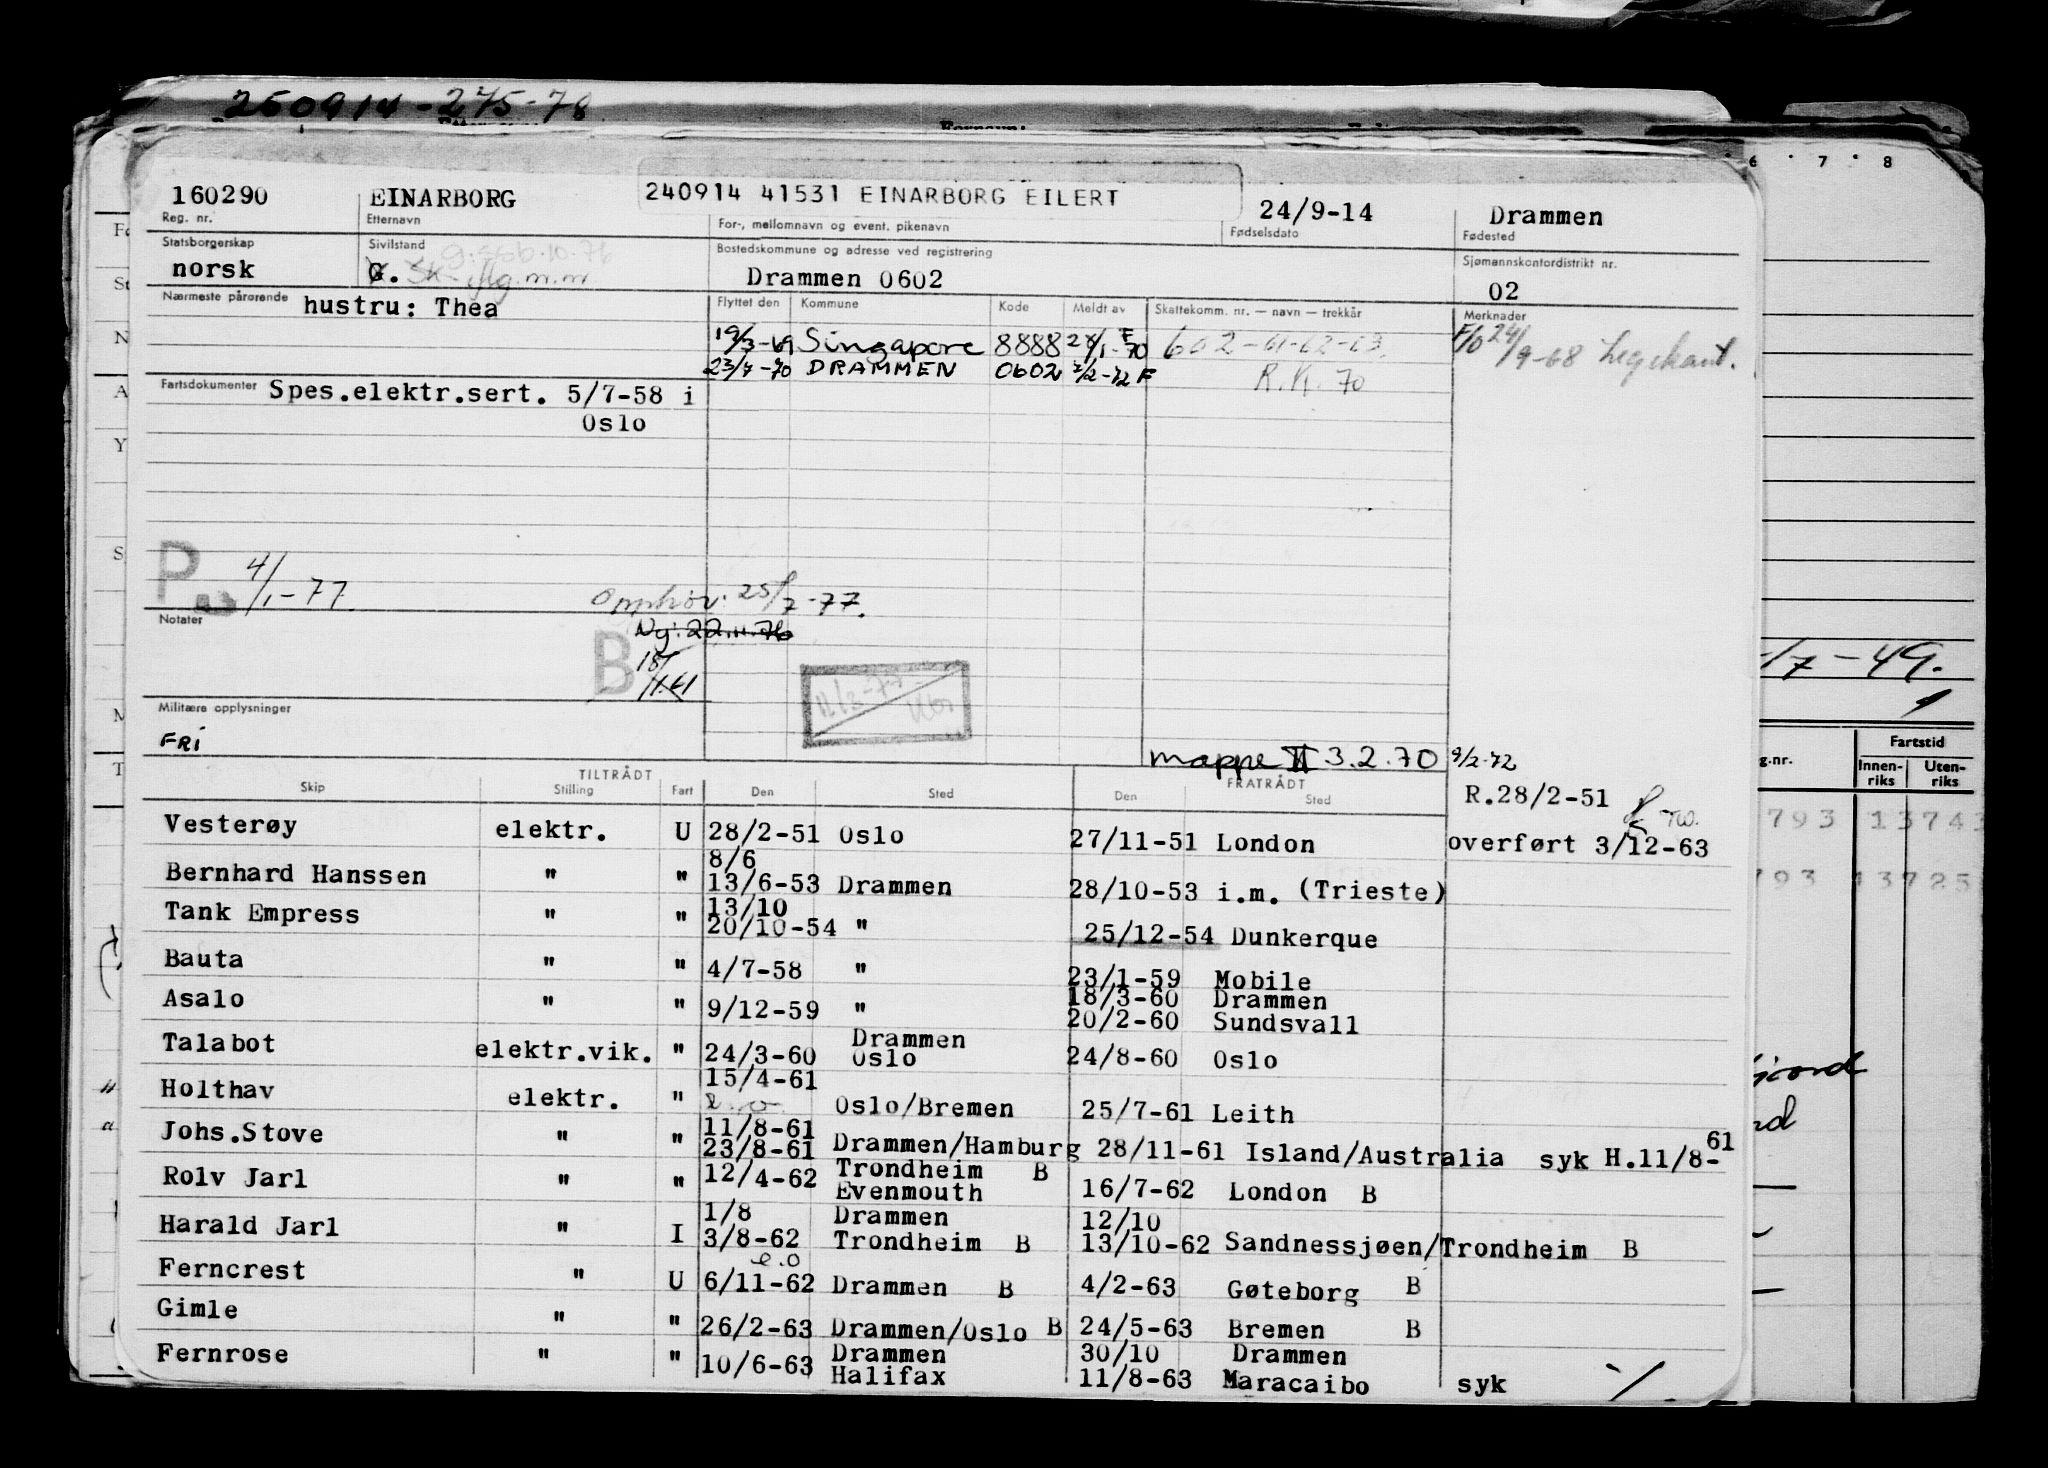 250914-275-78
6 7 8
160290 EINARBORG 240914 41531 EINARBORG EILERT 24/9-14 Drammen
Reg. nr. Etternavn For-, mellomnavn og event. pikenavn Fødselsdato Fødested
Statsborgerskap Sivilstand Bostedskommune og adresse ved registrering Sjømannskontordistrikt nr.
norsk G. Drammen 0602 02
Nærmeste pårørende hustru: Thea Flyttet den Kommune Kode Meldt av Skattekomm. nr. — navn — trekkår Merknader
19/3-69 Singapore 8888 602-61-62-63. 24/9-68 Legekont.
23/7-70 DRAMMEN 0602 2/2-72 F R.K. 70
Fartsdokumenter Spes.elektr.sert. 5/7-58 i
Oslo
P 4/1-77.
Opphør: 25/7-77.
Notater Ny: 22.11.76
B 18/
-/7-49.
Militære opplysninger
FRI
mappe II 3.2.70 9/2-72
TILTRÅDT FRATRÅDT
Skip Stilling Fart Den Sted Den Sted
R.28/2-51
g.nr. Fartstid
Innen-riks Uten-riks
Vesterøy elektr. U 28/2-51 Oslo 27/11-51 London overført 3/12-63
793 13743
8/6
Bernhard Hanssen " " 13/6-53 Drammen 28/10-53 i.m. (Trieste)
793 13725
13/10
Tank Empress " " 20/10-54 " 25/12-54 Dunkerque
Bauta " " 4/7-58 " 23/1-59 Mobile
18/3-60 Drammen
Asalo " " 9/12-59 " 20/2-60 Sundsvall
Drammen
Talabot elektr.vik. " 24/3-60 Oslo 24/8-60 Oslo
15/4-61
Holthav elektr. " Oslo/Bremen 25/7-61 Leith
11/8-61
Johs.Stove " " 23/8-61 Drammen/Hamburg 28/11-61 Island/Australia syk H.11/8-61
Trondheim B
Rolv Jarl " " 12/4-62 Evenmouth 16/7-62 London B
1/8 Drammen 12/10
Harald Jarl " I 3/8-62 Trondheim B 13/10-62 Sandnessjøen/Trondheim B
e.o
Ferncrest " U 6/11-62 Drammen B 4/2-63 Gøteborg B
Gimle " " 26/2-63 Drammen/Oslo B 24/5-63 Bremen B
Drammen 30/10 Drammen
Fernrose " " 10/6-63 Halifax 11/8-63 Maracaibo syk